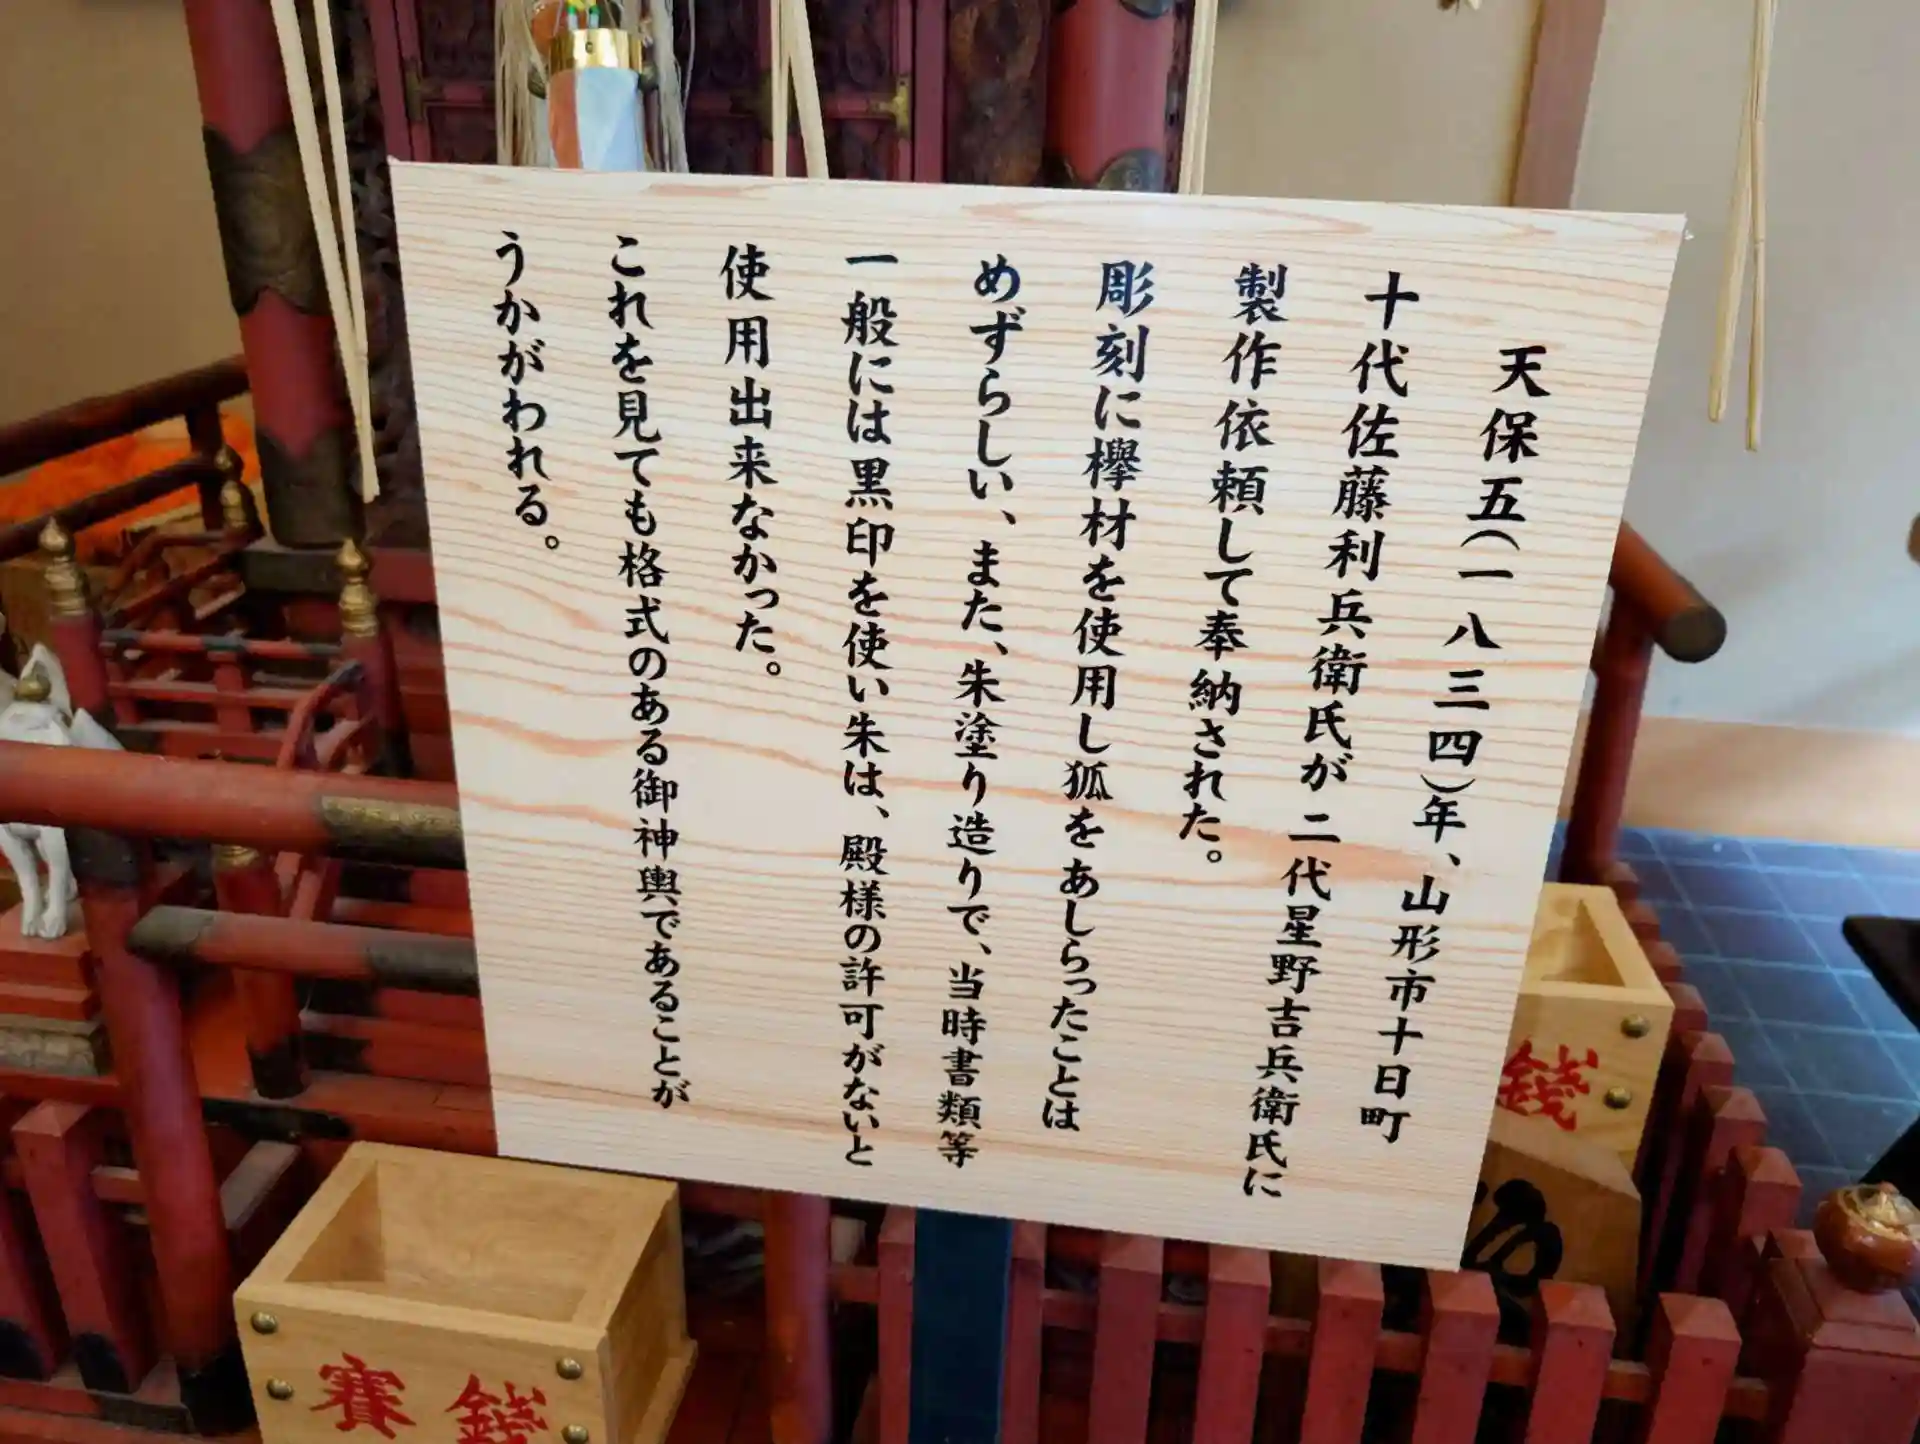 天保五(一八三四)年、山形市十日町
十代佐藤利兵衛氏が二代星野吉兵衛氏に
製作依頼して奉納された。
彫刻に欅材を使用し狐をあしらったことは
めずらしい、また、朱塗り造りで、当時書類等
一般には黒印を使い朱は、殿様の許可がないと
使用出来なかった。
これを見ても格式のある御神輿であることが
うかがわれる。
賽銭
銭